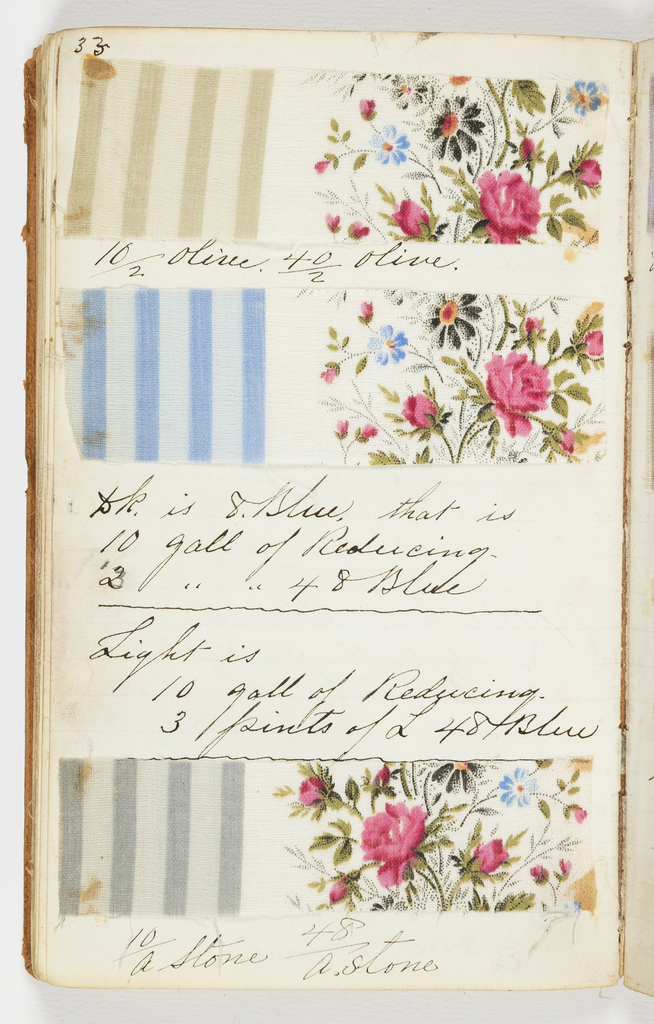 33
10/2 Olive. 40/2 Olive.
Dk. is 8. Blue. that is
10 gall of Reducing.
2 " " 48 Blue
Light is
10 gall of Reducing.
3 pints of L 48 Blue
10/a Stone 48/a. stone